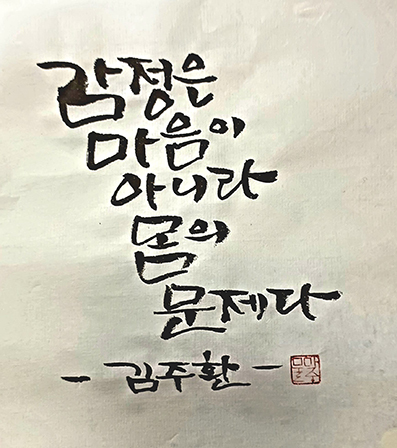 감정은
마음이
아니라
몸의
문제다
- 김주환 -